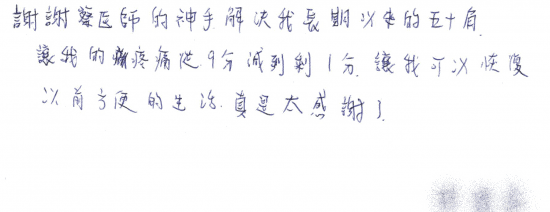 謝謝蔡医師的神手解決我長期以來的五十肩.
讓我的疼痛從9分減到剩1分.讓我可以恢復
以前方便的生活.真是太感謝了